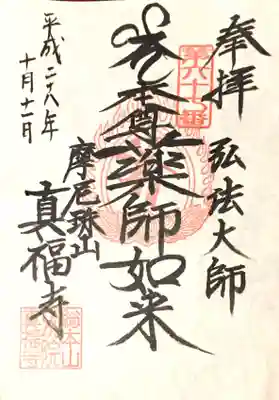 奉拝 弘法大師
第六十七番
本尊薬師如来
摩尼珠山
真福寺
平成二十八年
十月十一日